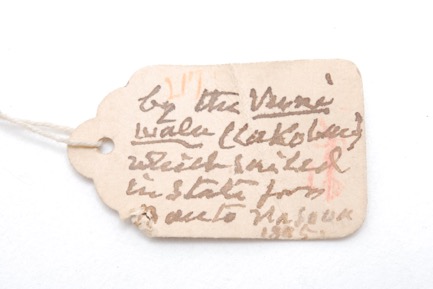 by the Vuni
walu (Cakobau)
which sailed
in State from
Bau to Nasova
1875.